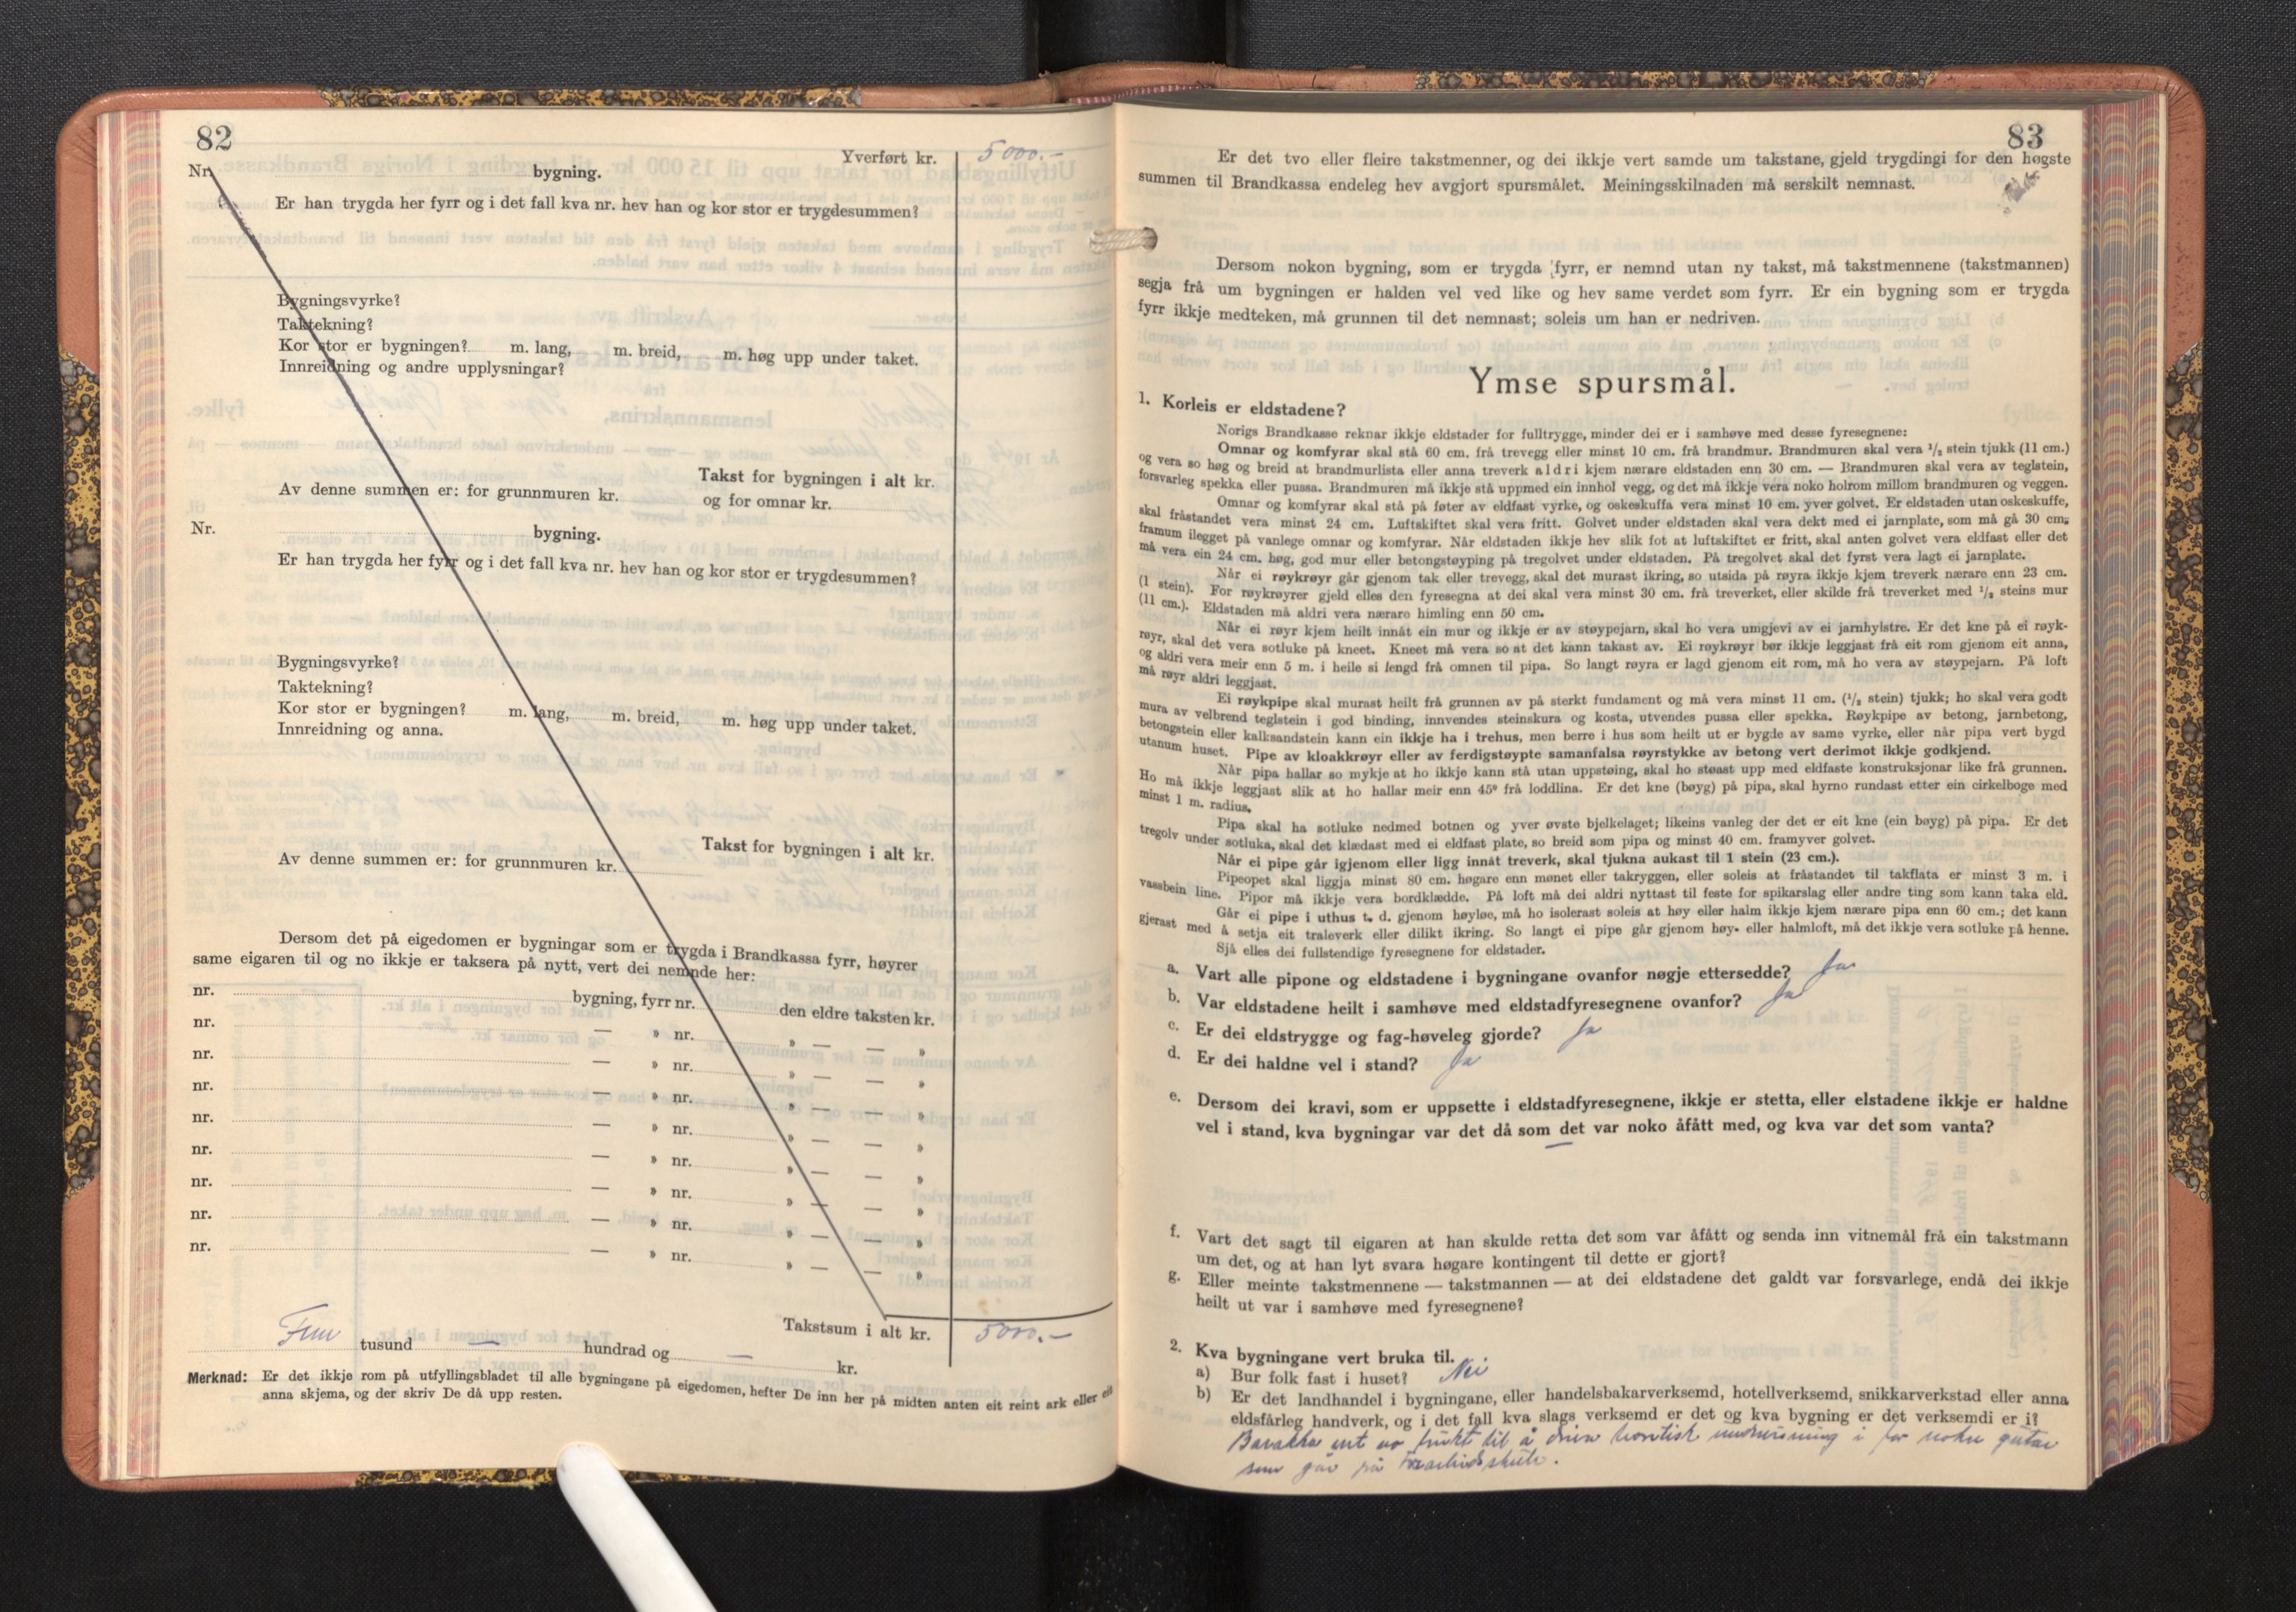 82
Yverført kr. 5000.-
Nr. bygning.
Er han trygda her fyrr og i det fall kva nr. hev han og kor stor er trygdesummen?
Bygningsvyrke?
Taktekning?
Kor stor er bygningen? m. lang, m. breid, m. høg upp under taket.
Innreidning og andre upplysningar?
Takst for bygningen i alt kr.
Av denne summen er: for grunnmuren kr. og for omnar kr.
Nr. bygning.
Er han trygda her fyrr og i det fall kva nr. hev han og kor stor er trygdesummen?
Bygningsvyrke?
Taktekning?
Kor stor er bygningen? m. lang, m. breid, m. høg upp under taket.
Innreidning og anna.
Takst for bygningen i alt kr.
Av denne summen er: for grunnmuren kr.
Dersom det på eigedomen er bygningar som er trygda i Brandkassa fyrr, høyrer
same eigaren til og no ikkje er taksera på nytt, vert dei nemnde her:
nr. bygning, fyrr nr. den eldre taksten kr.
nr. — » nr. » — — »
nr. — » nr. » — — »
nr. — » nr. » — — »
nr. — » nr. » — — »
nr. — » nr. » — — »
nr. — » nr. » — — »
nr. — » nr. » — — »
nr. — » nr. » — — »
Takstsum i alt kr. 5000.-
Fem tusund — hundrad og — kr.
Merknad: Er det ikkje rom på utfyllingsbladet til alle bygningane på eigedomen, hefter De inn her på midten anten eit reint ark eller eit
anna skjema, og der skriv De då upp resten.
83
Er det tvo eller fleire takstmenner, og dei ikkje vert samde um takstane, gjeld trygdingi for den høgste
summen til Brandkassa endeleg hev avgjort spursmålet. Meiningsskilnaden må serskilt nemnast.
Dersom nokon bygning, som er trygda fyrr, er nemnd utan ny takst, må takstmennene (takstmannen)
segja frå um bygningen er halden vel ved like og hev same verdet som fyrr. Er ein bygning som er trygda
fyrr ikkje medteken, må grunnen til det nemnast; soleis um han er nedriven.
Ymse spursmål.
1. Korleis er eldstadene?
Norigs Brandkasse reknar ikkje eldstader for fulltrygge, minder dei er i samhøve med desse fyresegnene:
Omnar og komfyrar skal stå 60 cm. frå trevegg eller minst 10 cm. frå brandmur. Brandmuren skal vera ¹/₂ stein tjukk (11 cm.)
og vera so høg og breid at brandmurlista eller anna treverk aldri kjem nærare eldstaden enn 30 cm. — Brandmuren skal vera av teglstein,
forsvarleg spekka eller pussa. Brandmuren må ikkje stå uppmed ein innhol vegg, og det må ikkje vera noko holrom millom brandmuren og veggen.
Omnar og komfyrar skal stå på føter av eldfast vyrke, og oskeskuffa vera minst 10 cm. yver golvet. Er eldstaden utan oskeskuffe,
skal fråstandet vera minst 24 cm. Luftskiftet skal vera fritt. Golvet under eldstaden skal vera dekt med ei jarnplate, som må gå 30 cm.
framum ilegget på vanlege omnar og komfyrar. Når eldstaden ikkje hev slik fot at luftskiftet er fritt, skal anten golvet vera eldfast eller det
må vera ein 24 cm. høg, god mur eller betongstøyping på tregolvet under eldstaden. På tregolvet skal det fyrst vera lagt ei jarnplate.
Når ei røykrøyr går gjenom tak eller trevegg, skal det murast ikring, so utsida på røyra ikkje kjem treverk nærare enn 23 cm.
(1 stein). For røykrøyrer gjeld elles den fyresegna at dei skal vera minst 30 cm. frå treverket, eller skilde frå treverket med ¹/₂ steins mur
(11 cm.). Eldstaden må aldri vera nærare himling enn 50 cm.
Når ei røyr kjem heilt innåt ein mur og ikkje er av støypejarn, skal ho vera umgjevi av ei jarnhylstre. Er det kne på ei røyk-
røyr, skal det vera sotluke på kneet. Kneet må vera so at det kann takast av. Ei røykrøyr bør ikkje leggjast frå eit rom gjenom eit anna,
og aldri vera meir enn 5 m. i heile si lengd frå omnen til pipa. So langt røyra er lagd gjenom eit rom, må ho vera av støypejarn. På loft
må røyr aldri leggjast.
Ei røykpipe skal murast heilt frå grunnen av på sterkt fundament og må vera minst 11 cm. (¹/₂ stein) tjukk; ho skal vera godt
mura av velbrend teglstein i god binding, innvendes steinskura og kosta, utvendes pussa eller spekka. Røykpipe av betong, jarnbetong,
betongstein eller kalksandstein kann ein ikkje ha i trehus, men berre i hus som heilt ut er bygde av same vyrke, eller når pipa vert bygd
utanum huset. Pipe av kloakkrøyr eller av ferdigstøypte samanfalsa røyrstykke av betong vert derimot ikkje godkjend.
Når pipa hallar so mykje at ho ikkje kann stå utan uppstøing, skal ho støast upp med eldfaste konstruksjonar like frå grunnen.
Ho må ikkje leggjast slik at ho hallar meir enn 45° frå loddlina. Er det kne (bøyg) på pipa, skal hyrno rundast etter ein cirkelboge med
minst 1 m. radius.
Pipa skal ha sotluke nedmed botnen og yver øvste bjelkelaget; likeins vanleg der det er eit kne (ein bøyg) på pipa. Er det
tregolv under sotluka, skal det klædast med ei eldfast plate, so breid som pipa og minst 40 cm. framyver golvet.
Når ei pipe går igjenom eller ligg innåt treverk, skal tjukna aukast til 1 stein (23 cm.).
Pipeopet skal liggja minst 80 cm. høgare enn mønet eller takryggen, eller soleis at fråstandet til takflata er minst 3 m. i
vassbein line. Pipor må ikkje vera bordklædde. På loft må dei aldri nyttast til feste for spikarslag eller andre ting som kann taka eld.
Går ei pipe i uthus t. d. gjenom høyløe, må ho isolerast soleis at høy eller halm ikkje kjem nærare pipa enn 60 cm.; det kann
gjerast med å setja eit traleverk eller dilikt ikring. So langt ei pipe går gjenom høy- eller halmloft, må det ikkje vera sotluke på henne.
Sjå elles dei fullstendige fyresegnene for eldstader.
a. Vart alle pipone og eldstadene i bygningane ovanfor nøgje ettersedde? Ja
b. Var eldstadene heilt i samhøve med eldstadfyresegnene ovanfor? Ja
c. Er dei eldstrygge og fag-høveleg gjorde? Ja
d. Er dei haldne vel i stand? Ja
e. Dersom dei kravi, som er uppsette i eldstadfyresegnene, ikkje er stetta, eller elstadene ikkje er haldne
vel i stand, kva bygningar var det då som det var noko åfått med, og kva var det som vanta?
—
f. Vart det sagt til eigaren at han skulde retta det som var åfått og senda inn vitnemål frå ein takstmann
um det, og at han lyt svara høgare kontingent til dette er gjort?
g. Eller meinte takstmennene — takstmannen — at dei eldstadene det galdt var forsvarlege, endå dei ikkje
heilt ut var i samhøve med fyresegnene?
2. Kva bygningane vert bruka til.
a) Bur folk fast i huset? Nei
b) Er det landhandel i bygningane, eller handelsbakarverksemd, hotellverksemd, snikkarverkstad eller anna
eldsfårleg handverk, og i det fall kva slags verksemd er det og kva bygning er det verksemdi er i?
Barakka til å teoretisk i for nokre gutar
som går på